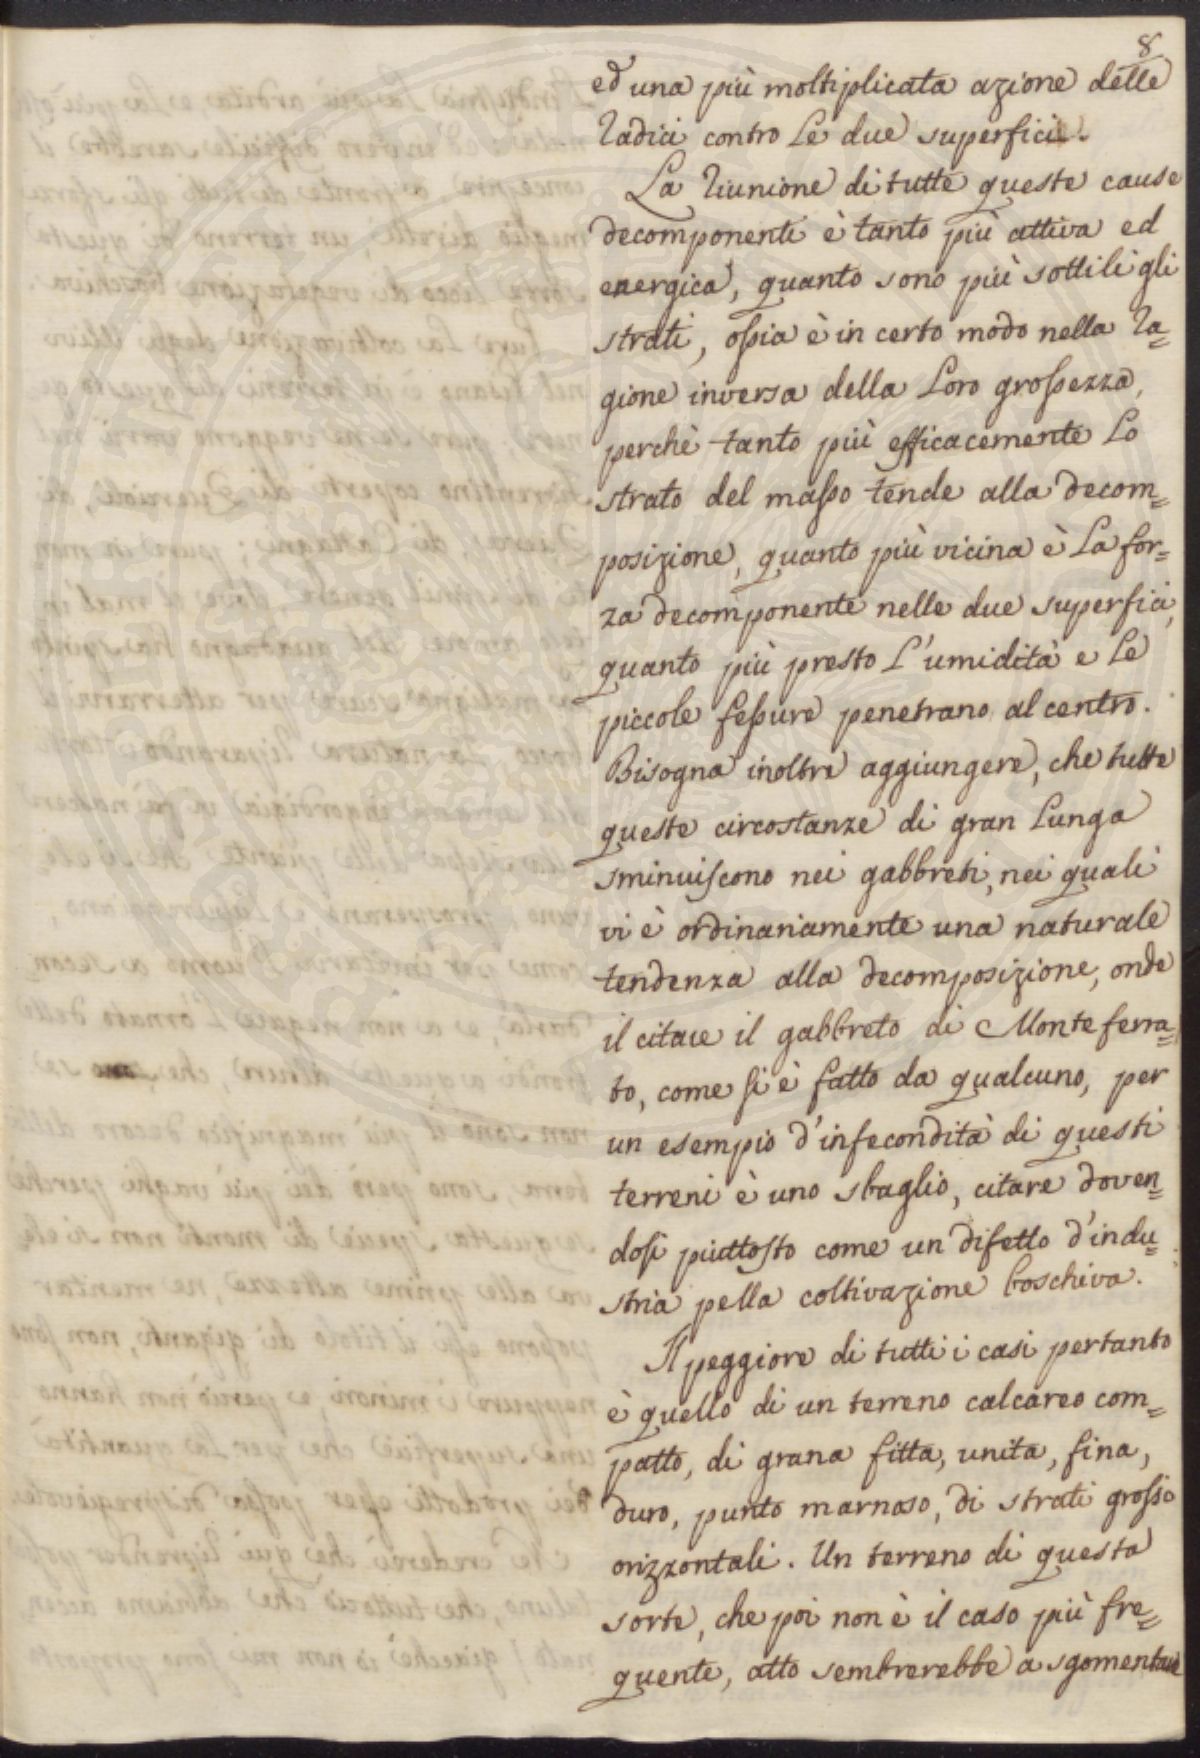 8
ed una più moltiplicata azione delle
radici contro le due superfici.
La riunione di tutte queste cause
decomponenti è tanto più attiva ed
energica, quanto sono più sottili gli
strati, ossia è in certo modo nella ra=
gione inversa della loro grossezza,
perchè tanto più efficacemente lo
strato del masso tende alla decom=
posizione, quanto più vicina è la for=
za decomponente nelle due superfici,
quanto più presto l'umidità e le
piccole fessure penetrano al centro.
Bisogna inoltre aggiungere, che tutte
queste circostanze di gran lunga
sminuiscono nei gabbreti, nei quali
vi è ordinariamente una naturale
tendenza alla decomposizione, onde
il citare il gabbreto di Monteferra=
to, come si è fatto da qualcuno, per
un esempio d'infecondità di questi
terreni è uno sbaglio, citare doven=
dosi piuttosto come un difetto d'indu=
stria pella coltivazione boschiva.
Il peggiore di tutti i casi pertanto
è quello di un terreno calcareo com=
patto, di grana fitta, unita, fina,
duro, punto marnoso, di strati grossi
orizzontali. Un terreno di questa
sorte, che poi non è il caso più fre=
quente, atto sembrerebbe a sgomentare